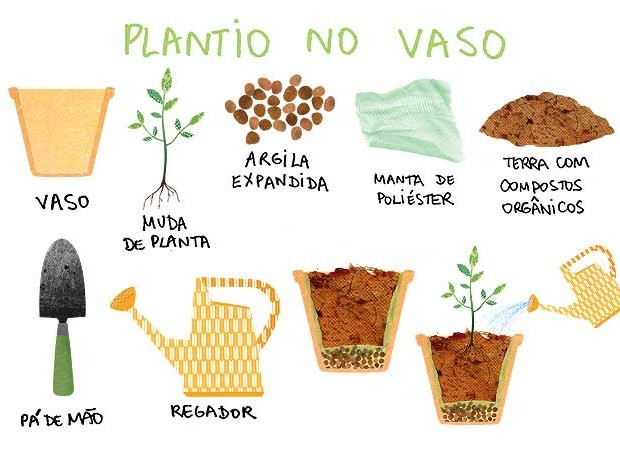 PLANTIO NO VASO
VASO
MUDA
DE PLANTA
ARGILA
EXPANDIDA
MANTA DE
POLIÉSTER
TERRA COM
COMPOSTOS
ORGÂNICOS
PÁ DE MÃO
REGADOR